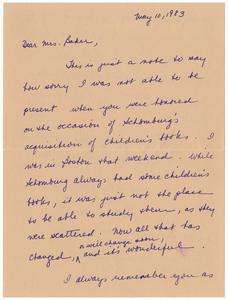 May 10, 1983
Dear Mrs. Baker,
This is just a note to say
how sorry I was not able to be
present when you were honored
on the occasion of Schomburg's
acquisition of children's
books. I
was in Boston that weekend. While
Schomburg always had some children's
books, it was just not the place
to be able to study them, as they
were scattered. Now all that has
will change soon,
changed, and it's wonderful.
I always remember you as